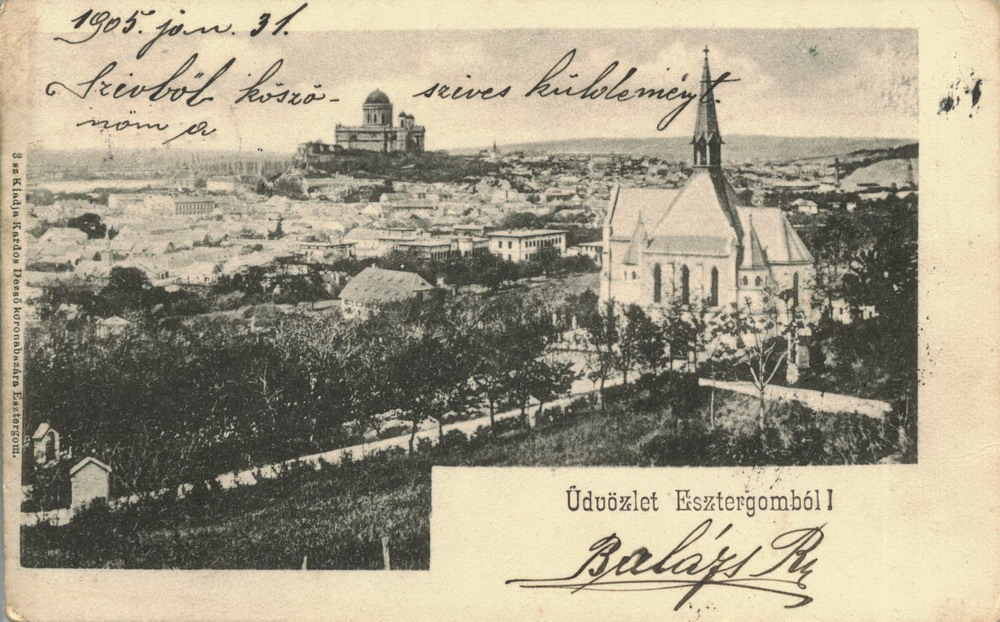 1905. jan. 31.
Szivből köszö- szives küldeményt.
nöm a
3 sz Kiadja Kardos Dezső koronabazára Esztergom.
Üdvözlet Esztergomból!
Balázs R